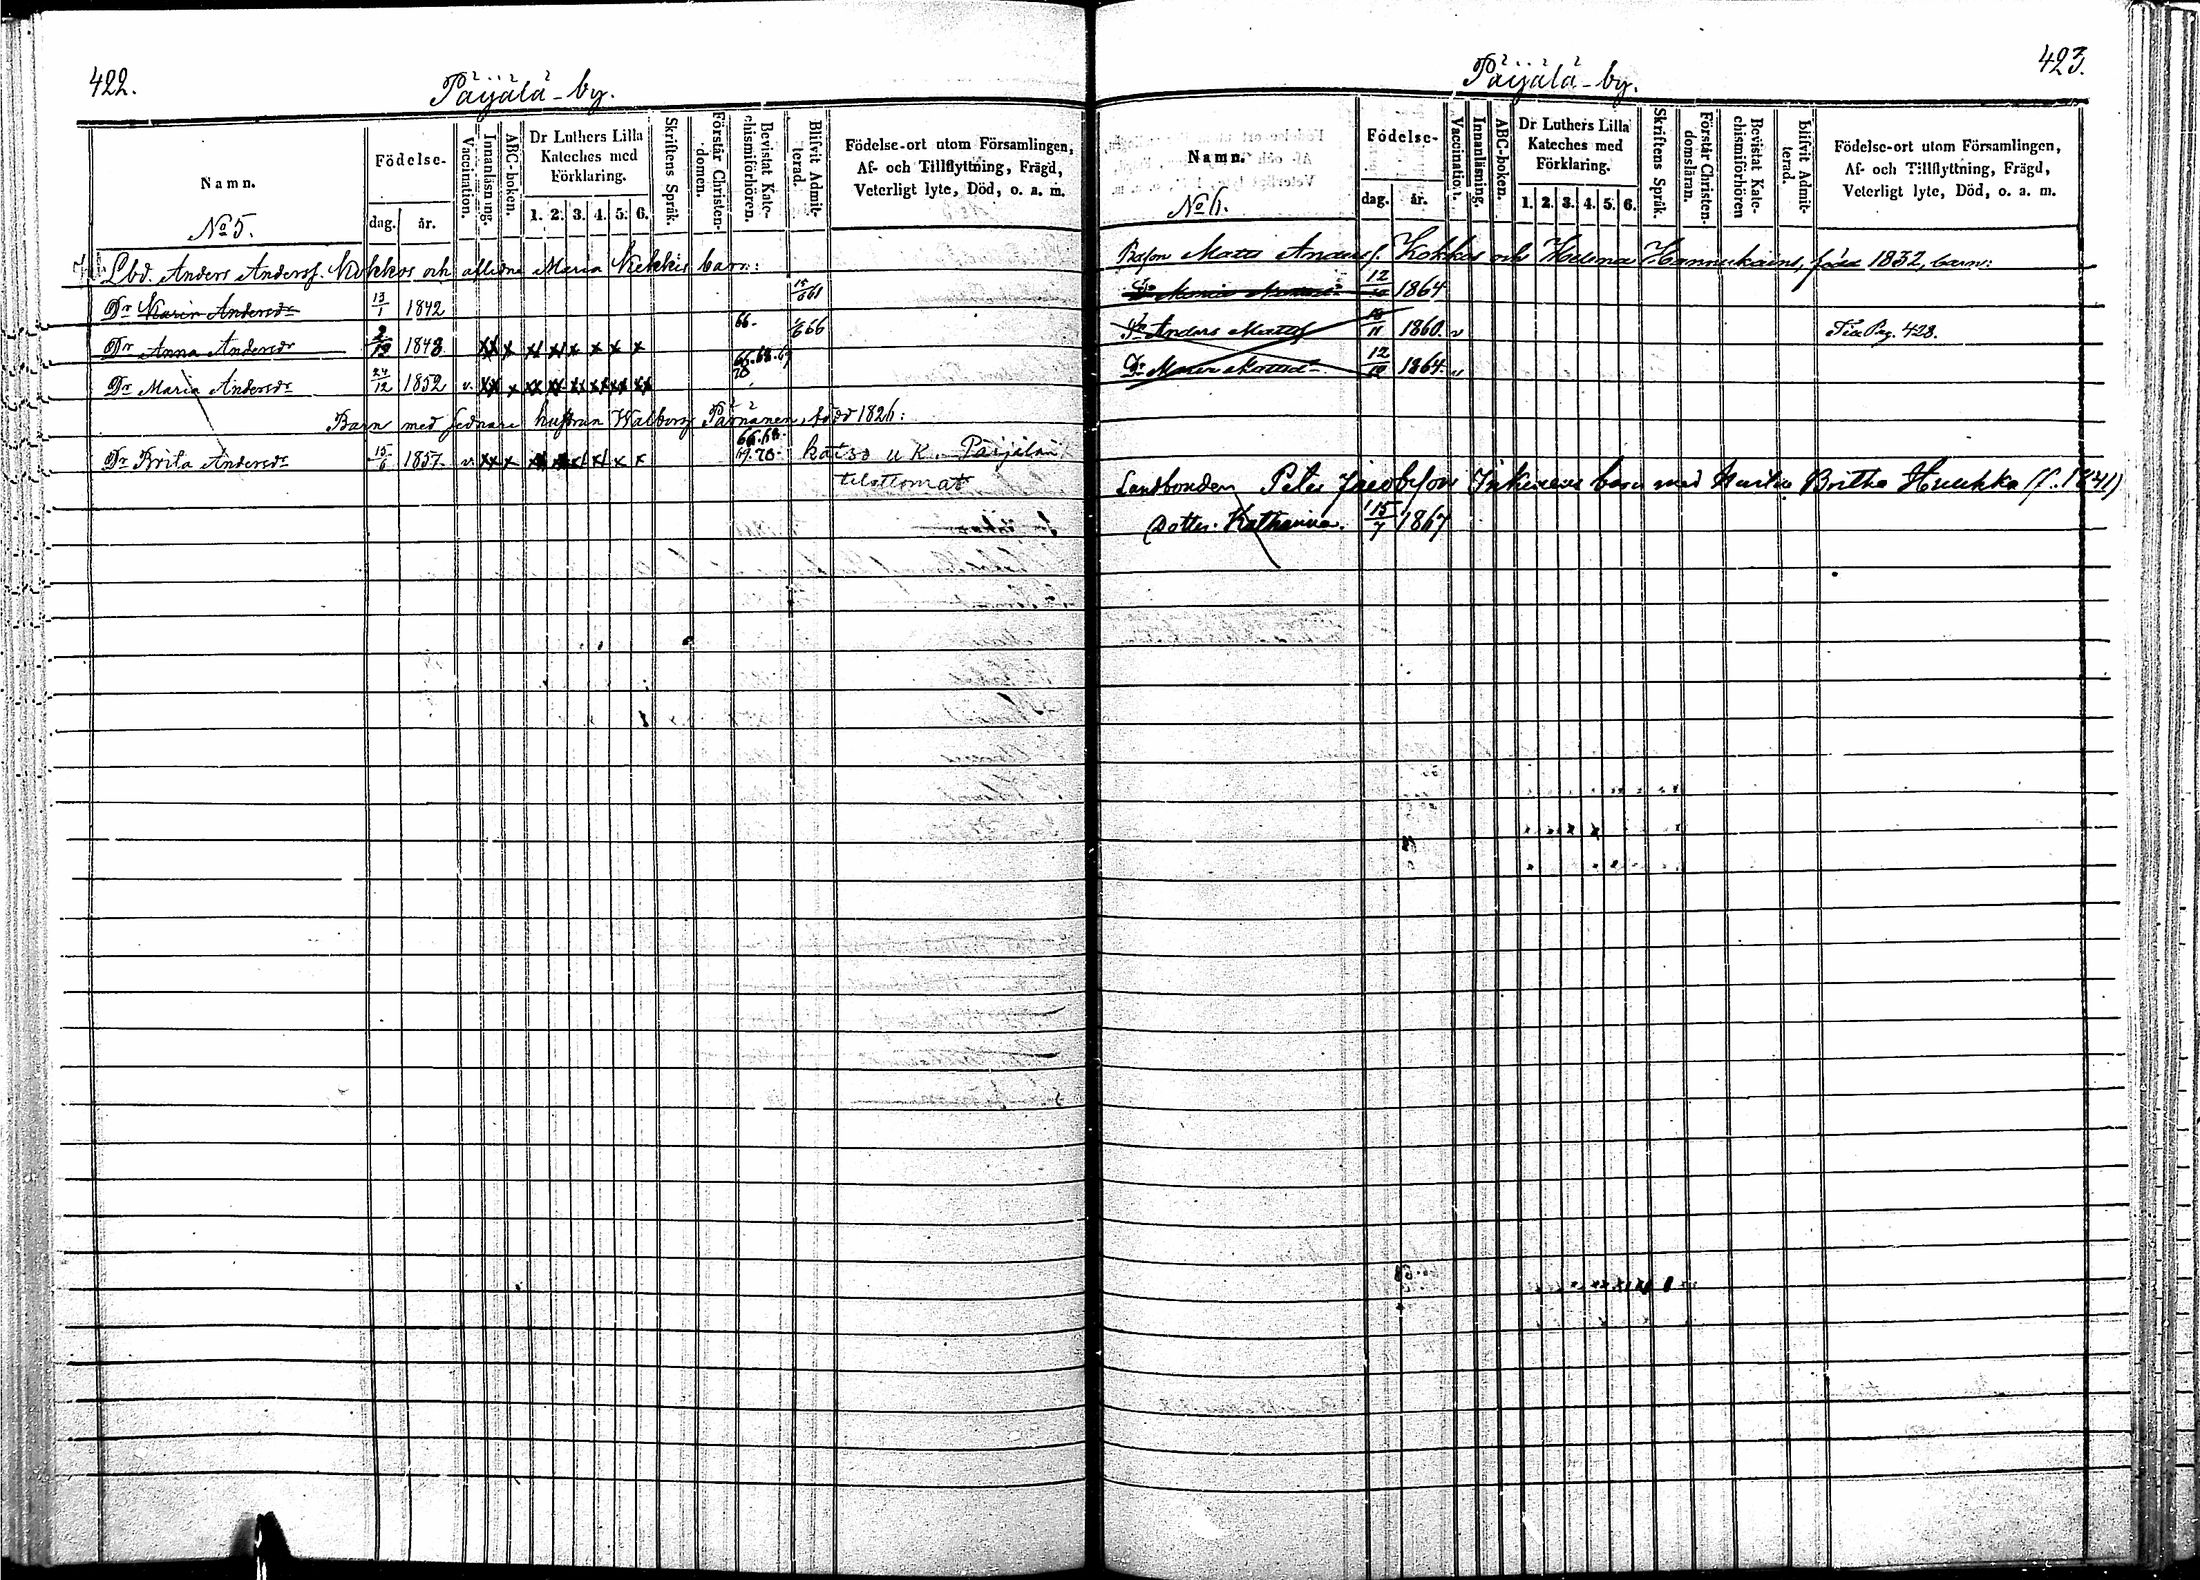 422.
Päijälä-by.
Namn.
No 5.
Födelse-
dag.
år.
Vaccination.
Innanläsning.
ABC-boken.
Dr Luthers Lilla
Kateches med
Förklaring.
1. 2. 3. 4. 5. 6.
Skriftens Språk.
Förstår Christen-
domen.
Bevistat Kate-
chismiförhören.
Blifvit Admit-
terad.
Födelse-ort utom Församlingen,
Af- och Tillflyttning, Frägd,
Veterligt lyte, Död, o. a. m.
Lbd. Anders Anderss. Kokkos och aflidne Maria Kekkis barn:
Dr Karin Andersdr 13/1 1842 61
Dr Anna Andersdr 1848 x x x x x x x 66. 66
Dr Maria Andersdr 24/12 1852 v. xx x xx xx xx xx xx xx 66.68.69 70
Barn med sednare hustrun Walborg Parnanen, född 1826:
Dr Brita Andersdr 15/6 1857 v. xx x x x 66.68. 69.70. katso u K. Päijälän
tilattomat
423.
Päijälä-by.
Namn.
No 6.
Födelse-
dag.
år.
Vaccination.
Innanläsning.
ABC-boken.
Dr Luthers Lilla
Kateches med
Förklaring.
1. 2. 3. 4. 5. 6.
Skriftens Språk.
Förstår Christen-
domsläran.
Bevistat Kate-
chismiförhören
Blifvit Admit-
terad.
Födelse-ort utom Församlingen,
Af- och Tillflyttning, Frägd,
Veterligt lyte, Död, o. a. m.
Matts Anderss. Kokkos och Helena Hannukains, född 1832, barn:
Dr Maria 12/10 1864
Anders Mattss 1860. v Pag. 428.
Dr Maria Mattsdr 12/10 1864. v
Landbonden Peter Jacobson Inkinens barn med Hustru Britha Huuhka (f. 1841)
Dotter Katharina. 15/7 1867